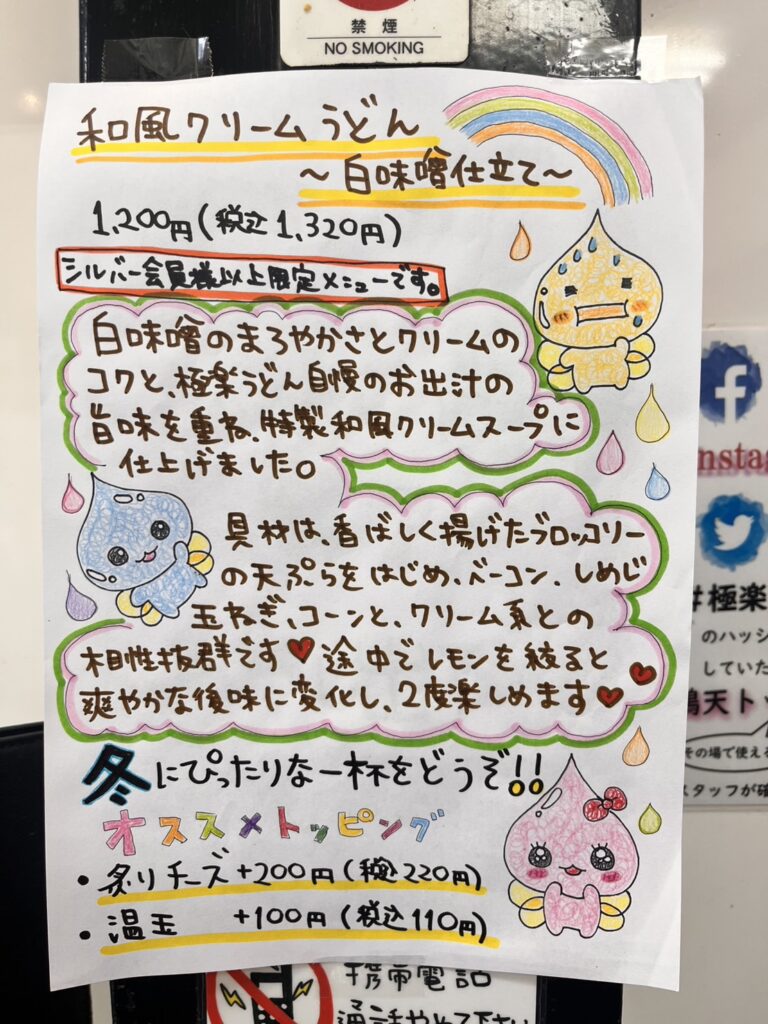 禁煙
NO SMOKING
和風クリームうどん
～白味噌仕立て～
1,200円(税込1,320円)
シルバー会員様以上限定メニューです。
白味噌のまろやかさとクリームの
コクと、極楽うどん自慢のお出汁の
旨味を重ね、特製和風クリームスープに
仕上げました。
具材は、香ばしく揚げたブロッコリー
の天ぷらをはじめ、ベーコン、しめじ
玉ねぎ、コーンと、クリーム系との
相性抜群です♥途中でレモンを絞ると
爽やかな後味に変化し、2度楽しめます♥♥
冬にぴったりな一杯をどうぞ!!
オススメトッピング
・炙りチーズ+200円(税込220円)
・温玉 +100円(税込110円)
nsta
#極楽
のハッシ
していた
鶏天ト
その場で使える
スタッフが確
携帯電話
通話やめて下さい